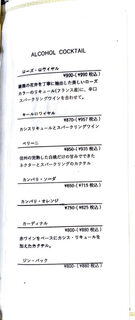 ALCOHOL COCKTAIL
ローズ・ロワイヤル
¥900-(¥990 税込)
薔薇の花弁を丁寧に抽出した美しいローズ
カラーのリキュール(フランス産)に、辛口
スパークリングワインを合わせて。
キール・ロワイヤル
¥870-(¥957 税込)
カシスリキュールとスパークリングワイン
ベリーニ
¥850-(¥935 税込)
信州の完熟した白桃だけの甘みでできた
ネクターとスパークリングのカクテル
カンパリ・ソーダ
¥650-(¥715 税込)
カンパリ・オレンジ
¥750-(¥825 税込)
カーディナル
¥800-(¥880 税込)
赤ワインをベースにカシス・リキュールを
加えたカクテル。
ジン・バック
¥800-(¥880 税込)